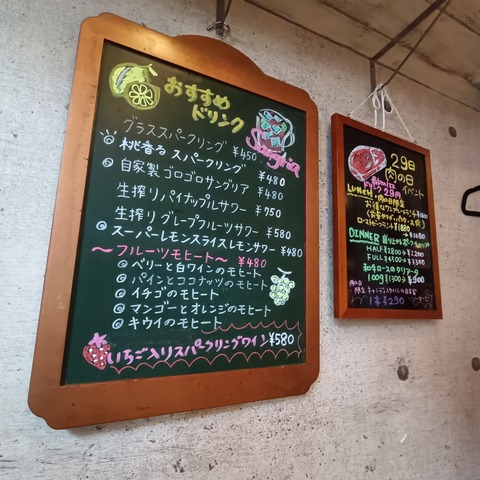 おすすめ
ドリンク
グラススパークリング ¥450
Sangria
桃香る スパークリング ¥480
自家製 ゴロゴロサングリア ¥480
生搾りパイナップルサワー ¥750
生搾りグレープフルーツサワー ¥580
スーパーレモンスライスレモンサワー ¥480
〜フルーツモヒート〜 ¥480
◎ベリーと白ワインのモヒート
◎パインとココナッツのモヒート
◎イチゴのモヒート
◎マンゴーとオレンジのモヒート
◎キウイのモヒート
いちご入りスパークリングワイン ¥580
29日
肉の日
イベント
29円
LUNCH
DINNER
HALF ¥2800→¥2200
FULL ¥4500→¥3300
100g ¥1300→¥900
1本 ¥290